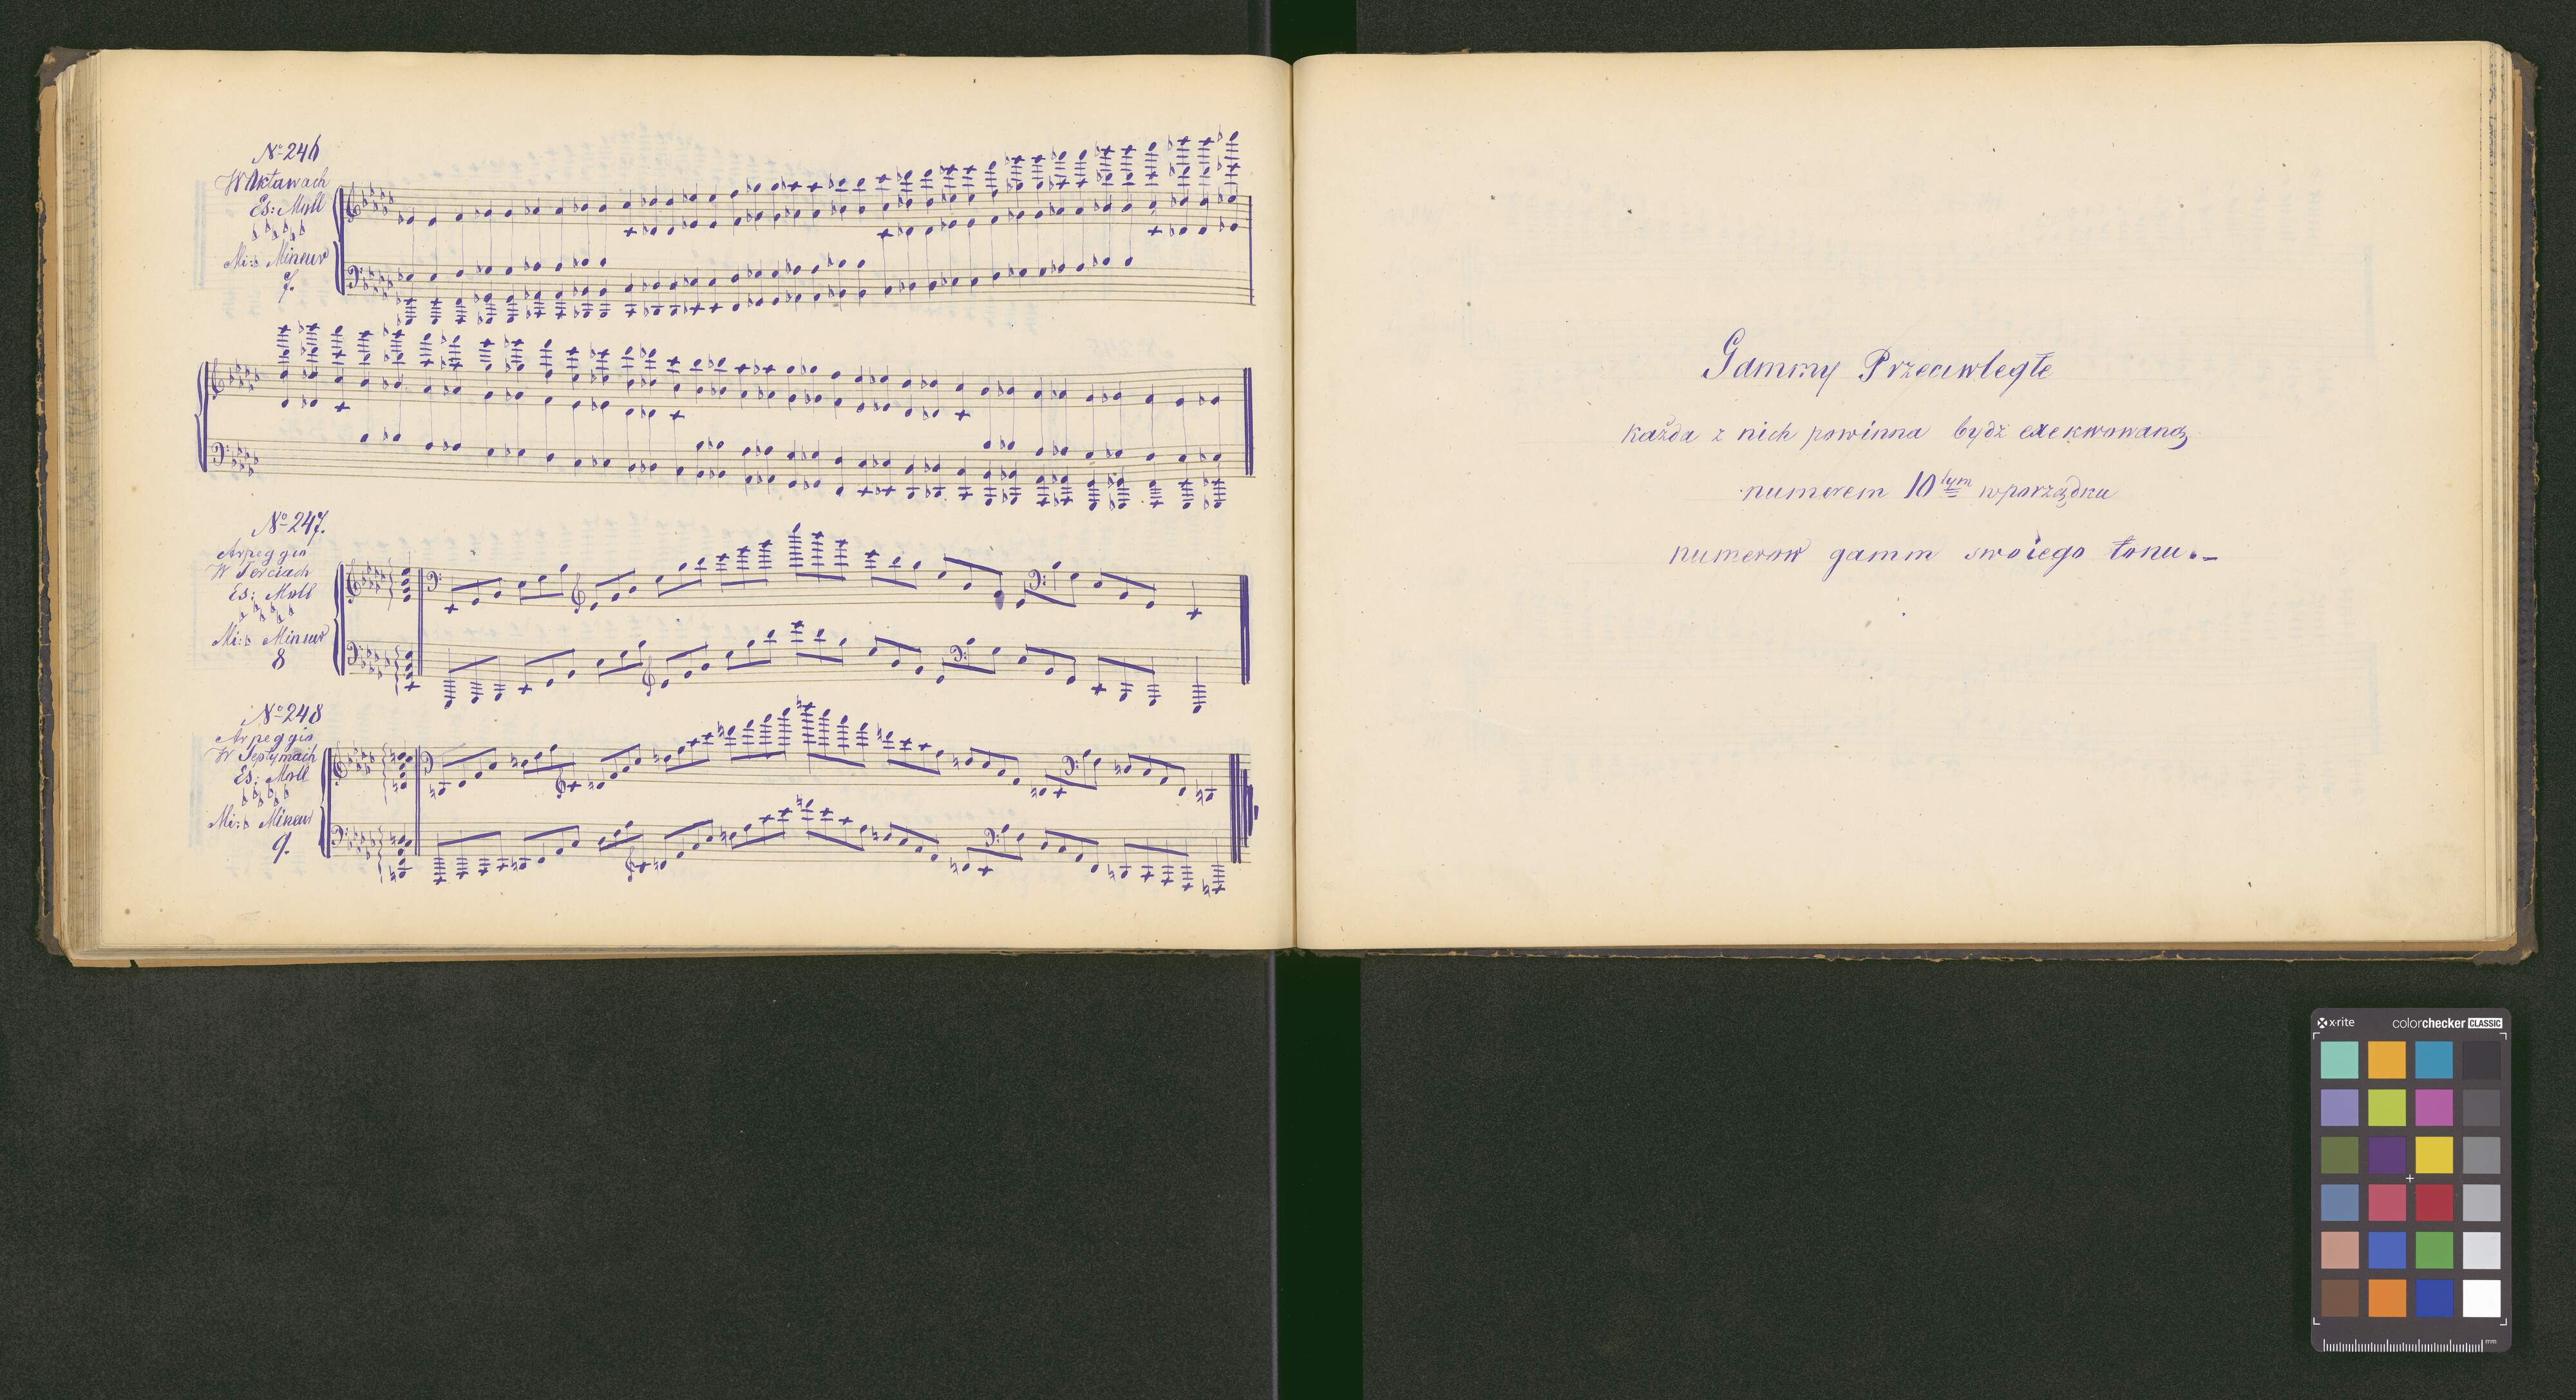 № 246
W Oktawach
Es: Moll
♭ ♭ ♭ ♭ ♭ ♭
Mi:♭ Mineur
7.
№ 247.
Arpeggio
W Terciach
Es: Moll
♭ ♭ ♭ ♭ ♭ ♭
Mi:♭ Mineur
8
№ 248
Arpeggio
W Septymach
Es: Moll
♭ ♭ ♭ ♭ ♭ ♭
Mi:♭ Mineur
9.
Gammy Przeciwległe
każda z nich powinna bydź exekwowaną
numerem 10tym w porządku
numerow gamm swoiego tonu.–
x-rite colorchecker CLASSIC
mm